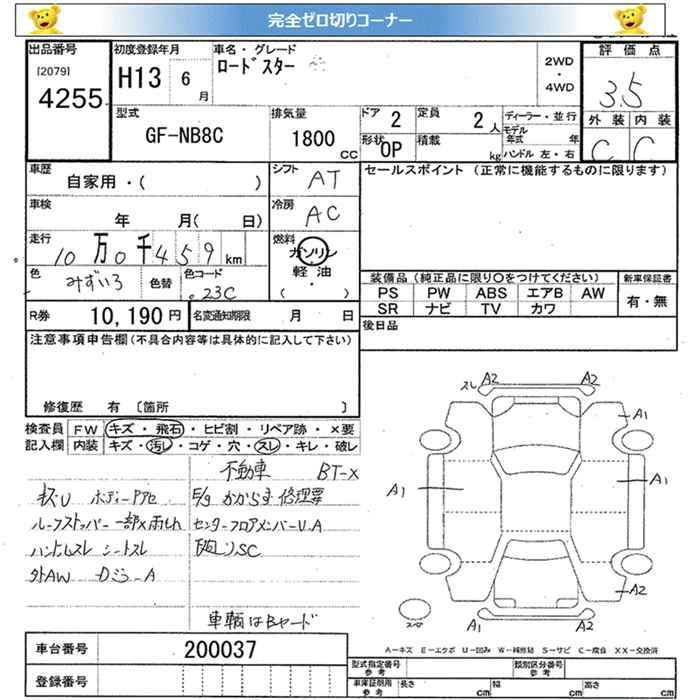 完全ゼロ切りコーナー
出品番号 初度登録年月 車名・グレード 評価点
[2079] ロードスター 2WD
4255 H13 6月 ・ 3.5
4WD
型式 排気量 ドア 2 定員 2人 ディーラー・並行 外装 内装
GF-NB8C 1800cc 形状 OP 積載 kg モデル年式 年 C C
ハンドル 左・右
車歴 自家用・( ) シフト AT セールスポイント (正常に機能するものに限ります)
車検 年 月( 日) 冷房 AC
走行 10万0千459km 燃料 ガソリン
軽油
・
( )
色 みずいろ 色替 色コード 23C
装備品 (純正品に限り○をつけてください) 新車保証書
PS PW ABS エアB AW 有・無
SR ナビ TV カワ
R券 10,190円 名変通知期限 月 日
後日品
注意事項申告欄(不具合内容等は具体的に記入して下さい)
修復歴 有 〔箇所 〕
検査員 FW キズ・飛石・ヒビ割・リペア跡・×要
記入欄 内装 キズ・汚レ・コゲ・穴・スレ・キレ・破レ
不動車 BT-X
キズU ボディーアセ E/gかからず修理要
ルーフストッパー一部×雨もれ センターフロアメンバーU、A
ハンドルスレ シートスレ 下廻りSC
外AW Dミラー A
車輌はBヤード
スレ A2 A2
A1
A1 A1
A2
A1 A2
A-キズ E-エクボ U-凹み W-補修跡 S-サビ C-腐食 XX-交換済
車台番号 200037
登録番号
型式指定番号 参考 類別区分番号 参考
車庫証明用 参考 長さ cm 幅 cm 高さ cm